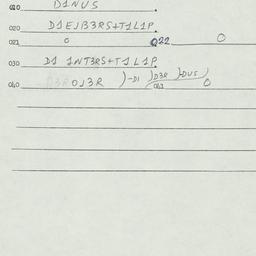 010 D1NUS.
020 D1EJB3RS+T1L1P.
021 0 022 0
030 D1 1NT3RS+T1L1P.
040 OJ3R )-D1 )D3R )DUS)
041 0